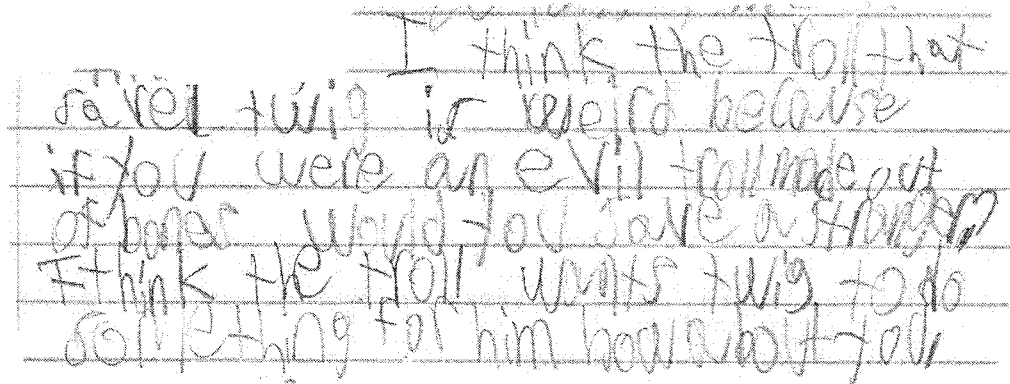 I think the troll that
saved twig is weird because
if you were an evil troll made out
of bones would you save a stranger?
I think the troll wants twig to do
something for him how about you